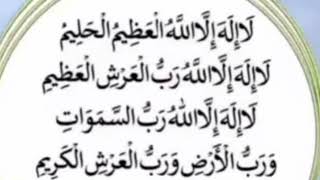 لَا إِلَهَ إِلَّا اللَّهُ الْعَظِيمُ الْحَلِيمُ
لَا إِلَهَ إِلَّا اللَّهُ رَبُّ الْعَرْشِ الْعَظِيمِ
لَا إِلَهَ إِلَّا اللَّهُ رَبُّ السَّمَوَاتِ
وَرَبُّ الْأَرْضِ وَرَبُّ الْعَرْشِ الْكَرِيمِ